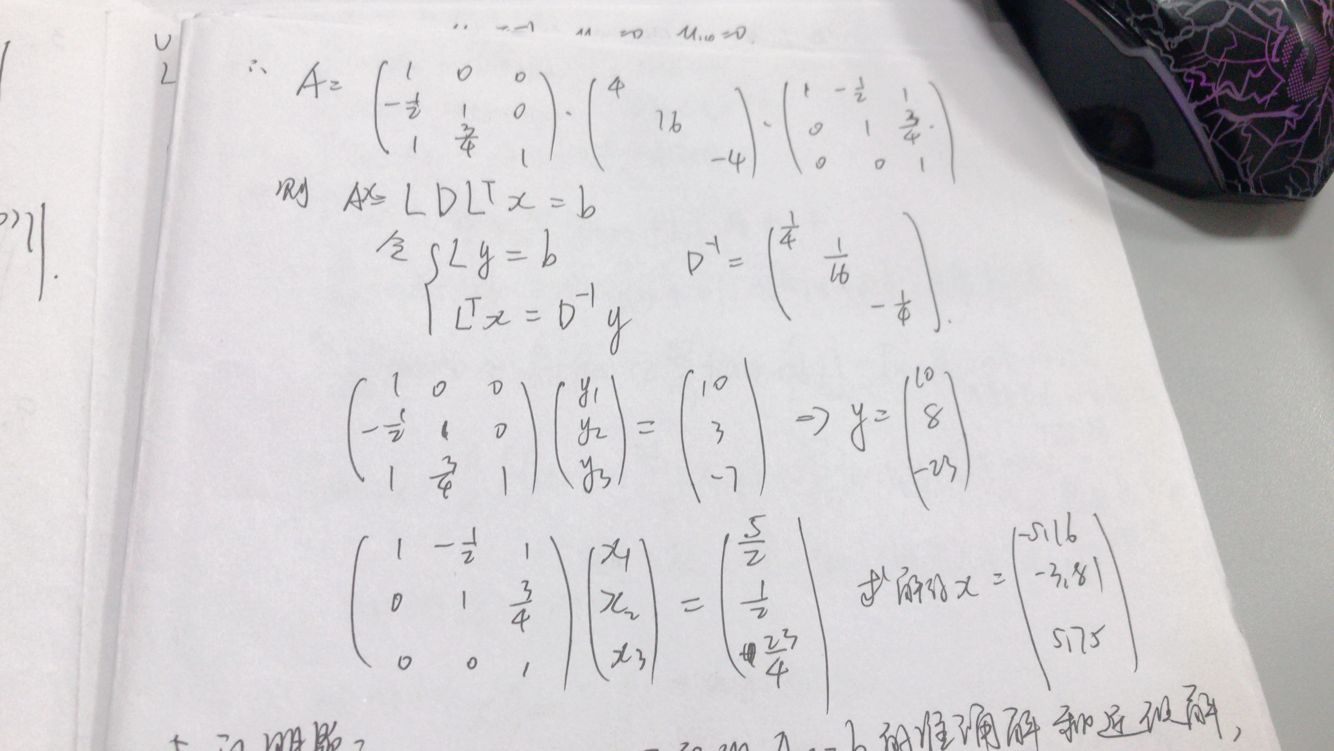 ∴ A = ( 1 0 0 ; -1/2 1 0 ; 1 3/4 1 ) · ( 4 ; 16 ; -4 ) · ( 1 -1/2 1 ; 0 1 3/4 ; 0 0 1 )
则 Ax = L D Lᵀ x = b
令 { Ly = b
Lᵀx = D⁻¹ y
D⁻¹ = ( 1/4 ; 1/16 ; -1/4 ).
( 1 0 0 ; -1/2 1 0 ; 1 3/4 1 ) ( y1 ; y2 ; y3 ) = ( 10 ; 3 ; -7 ) => y = ( 10 ; 8 ; -23 )
( 1 -1/2 1 ; 0 1 3/4 ; 0 0 1 ) ( x1 ; x2 ; x3 ) = ( 5/2 ; 1/2 ; 23/4 ) 求解得 x = ( -5.16 ; -3.81 ; 5.75 )
b 的准确解和近似解,